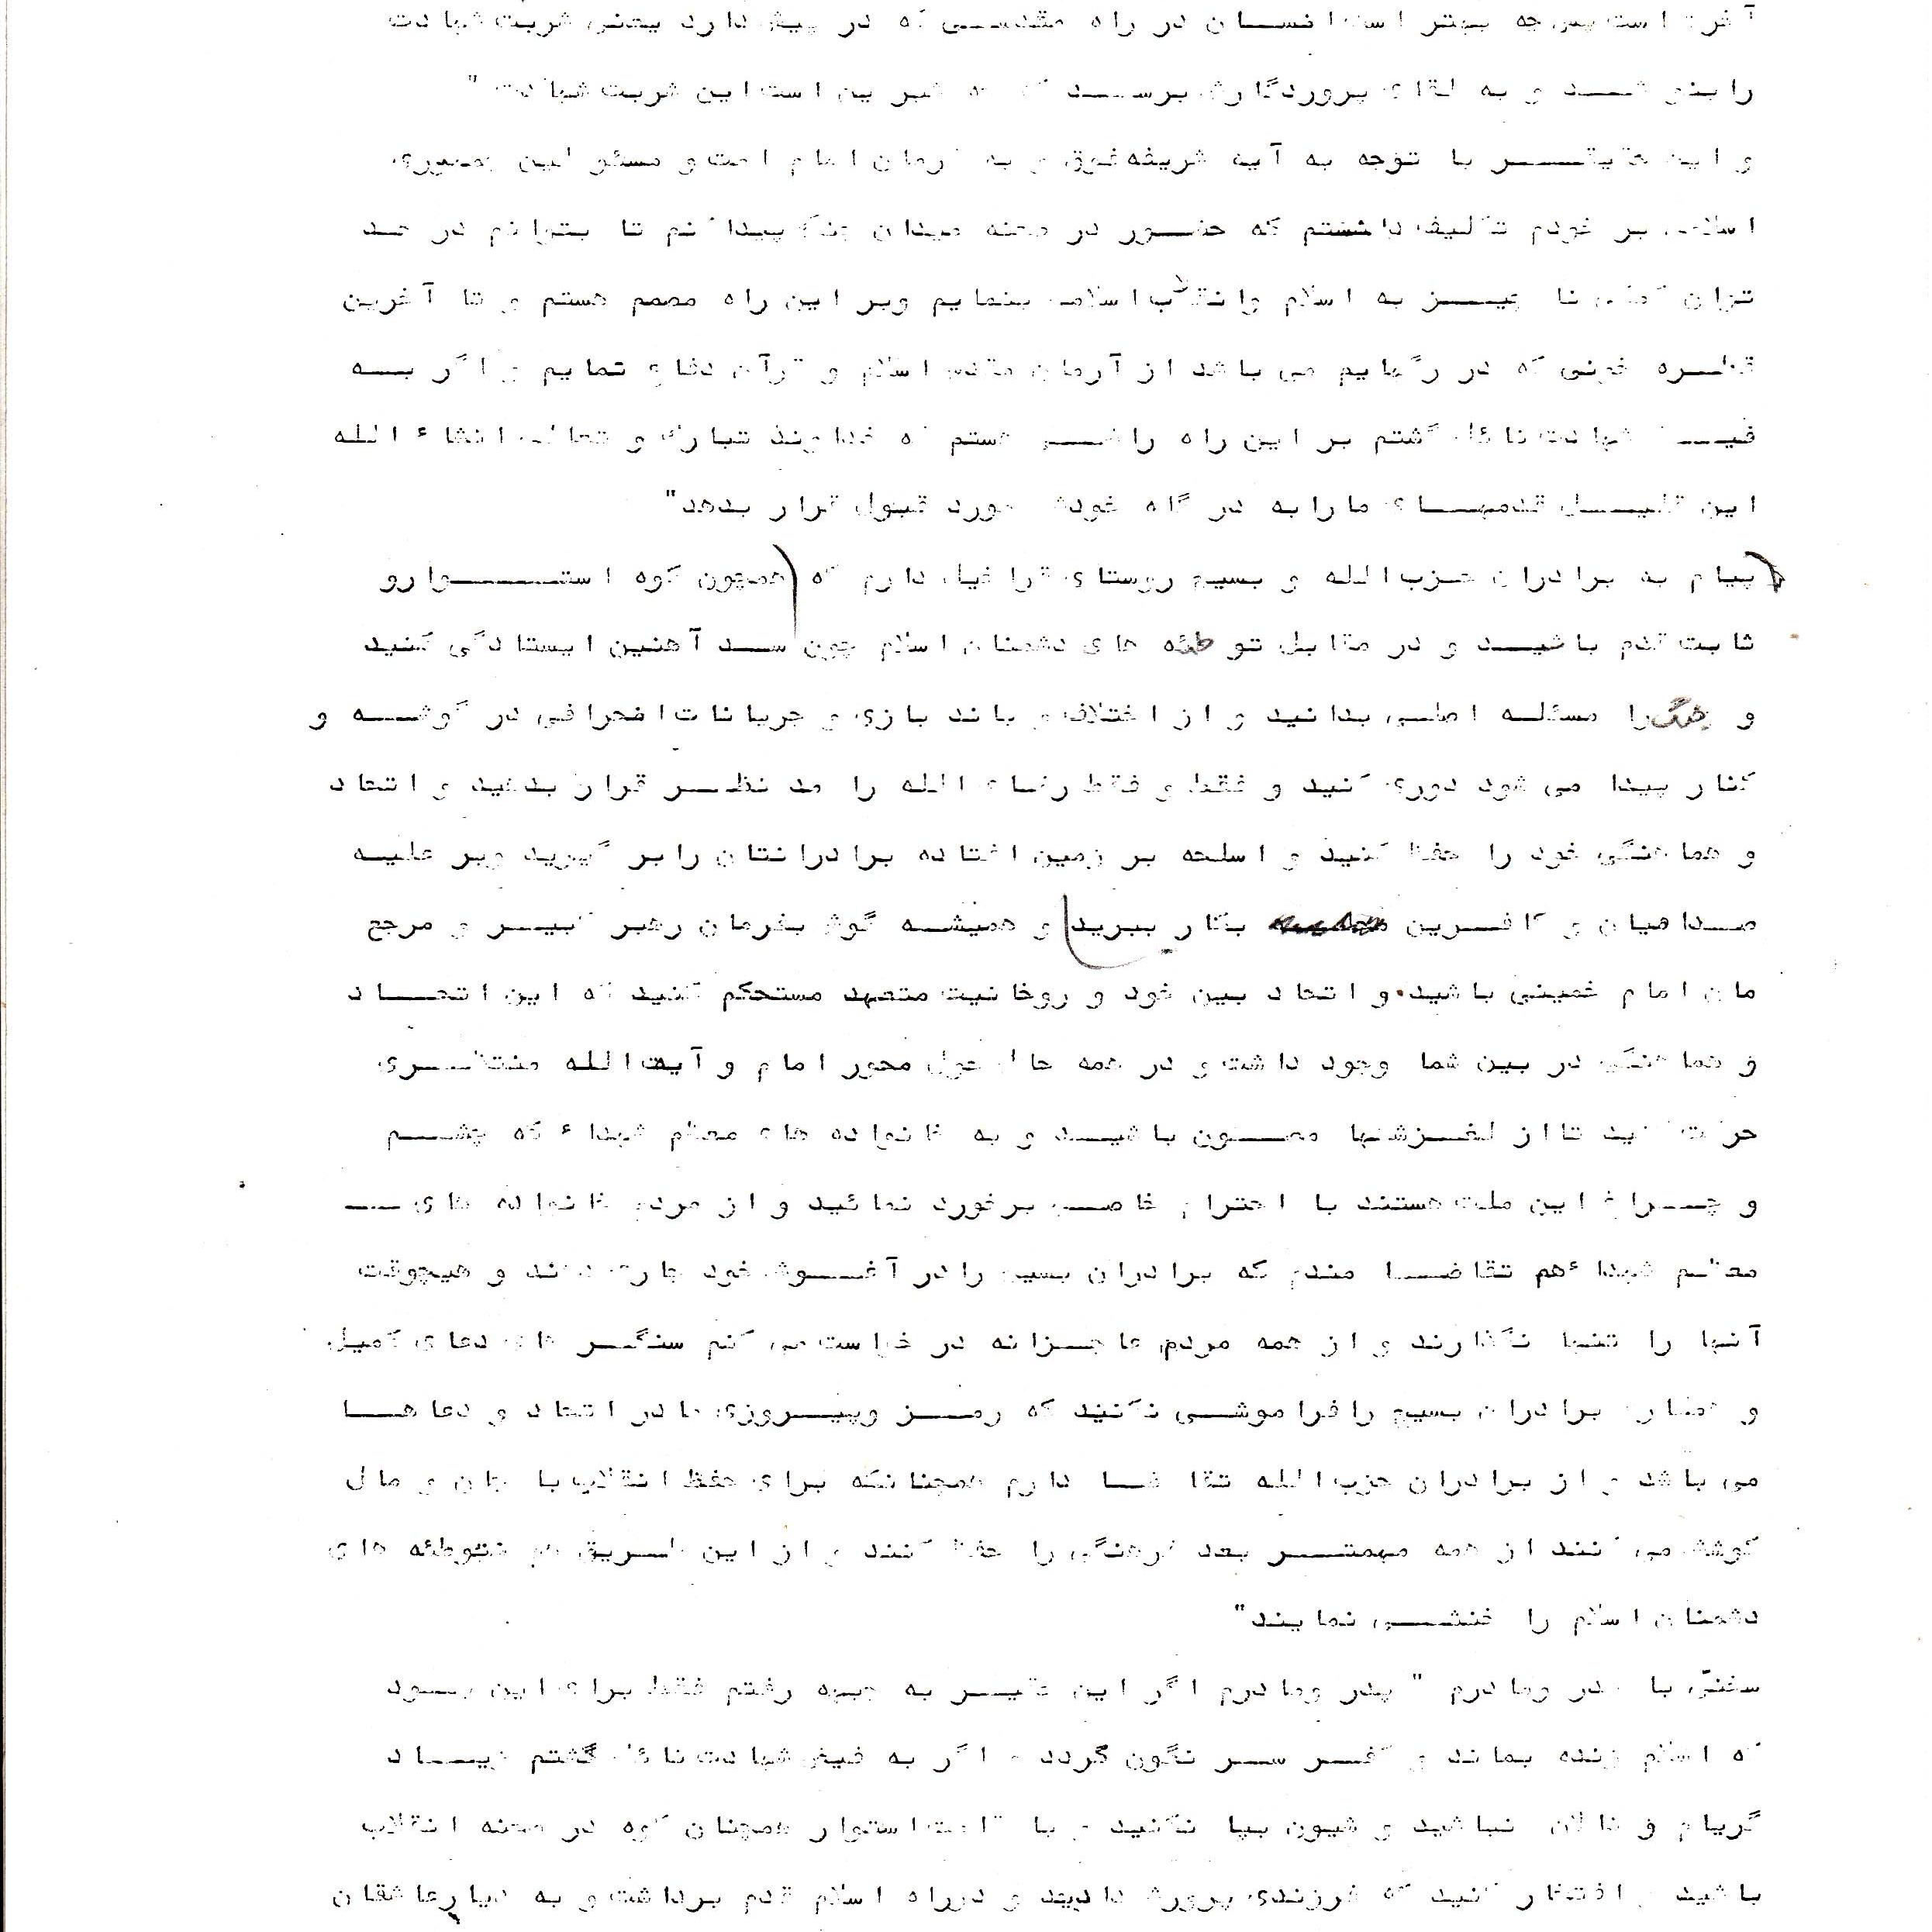 آخرت است پس چه بهتر است انسان در راه مقدسی که در پیش دارد یعنی شربت شهادت
را بنوشد و به لقای پروردگارش برسد که چه شیرین است این شربت شهادت"
و این حقیر با توجه به آیه شریفه فوق و به فرمان امام امت و مسئولین جمهوری
اسلامی بر خودم تکلیف دانستم که حضور در صحنه میدان جنگ پیدا کنم تا بتوانم در حد
توان کمکی نا چیز به اسلام وانقلاب اسلامی بنمایم وبر این راه مصمم هستم و تا آخرین
قطره خونی که در رگهایم می باشد از آرمان مقدس اسلام و قرآن دفاع نمایم و اگر به
فیض شهادت نائل گشتم بر این راه راضی هستم که خداوند تبارک و تعالی انشاء الله
این قلیل قدمهای ما را به در گاه خودش مورد قبول قرار بدهد"
پیام به برادران حزب الله و بسیج روستای قراخیل دارم که همچون کوه استوارو
ثابت قدم باشید و در مقابل توطئه های دشمنان اسلام چون سد آهنین ایستادگی کنید
و جنگ را مسئله اصلی بدانید و از اختلاف و باند بازی و جریانات انحرافی در گوشه و
کنار پیدا می شود دوری کنید و فقط و فقط رضای الله را مد نظر قرار بدهید و اتحاد
و هماهنگی خود را حفظ کنید و اسلحه بر زمین افتاده برادرانتان را بر گیرید وبر علیه
صدامیان و کافرین بکار ببرید و همیشه گوش بفرمان رهبر کبیر و مرجع
مان امام خمینی باشید. و اتحاد بین خود و روحانیت متعهد مستحکم کنید که این اتحاد
و هماهنگی در بین شما وجود داشت و در همه حال حول محور امام و آیت الله منتظری
حرکت کنید تا از لغزشها مصون باشید و به خانواده های معظم شهداء که چشم
و چراغ این ملت هستند با احترام خاصی برخورد نمائید و از مردم خانواده های
معظم شهداء هم تقاضا مندم که برادران بسیج را در آغوش خود جای دهند و هیچوقت
آنها را تنها نگذارند و از همه مردم عاجزانه در خواست می کنم سنگر های دعای کمیل
و همکاری برادران بسیج را فراموشی نکنید که رمز وپیروزی ما در اتحاد و دعاها
می باشد و از برادران حزب الله تقاضا دارم همچنانکه برای حفظ انقلاب با جان و مال
کوشش می کنند از همه مهمتر بعد فرهنگی را حفظ کنند و از این طریق هم توطئه های
دشمنان اسلام را خنثی نمایند"
سخنی با پدر ومادرم " پدر ومادرم اگر این حقیر به جبهه رفتم فقط برای این بود
که اسلام زنده بماند و کفر سر نگون گردد و اگر به فیض شهادت نائل گشتم زیاد
گریام و نالان نباشید و شیون بپا نکنید و با قامت استوار همچنان کوه در صحنه انقلاب
باشید و افتخار کنید که فرزندی پرورش دادید و درراه اسلام قدم برداشت و به دیار عاشقان